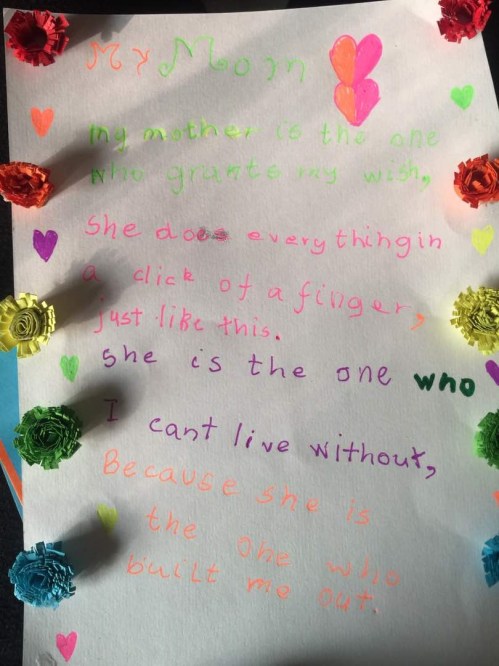 My Mom
my mother is the one
who grants my wish,
she does every thing in
a click of a finger,
just like this.
she is the one who
I cant live without,
Because she is
the one who
built me out.